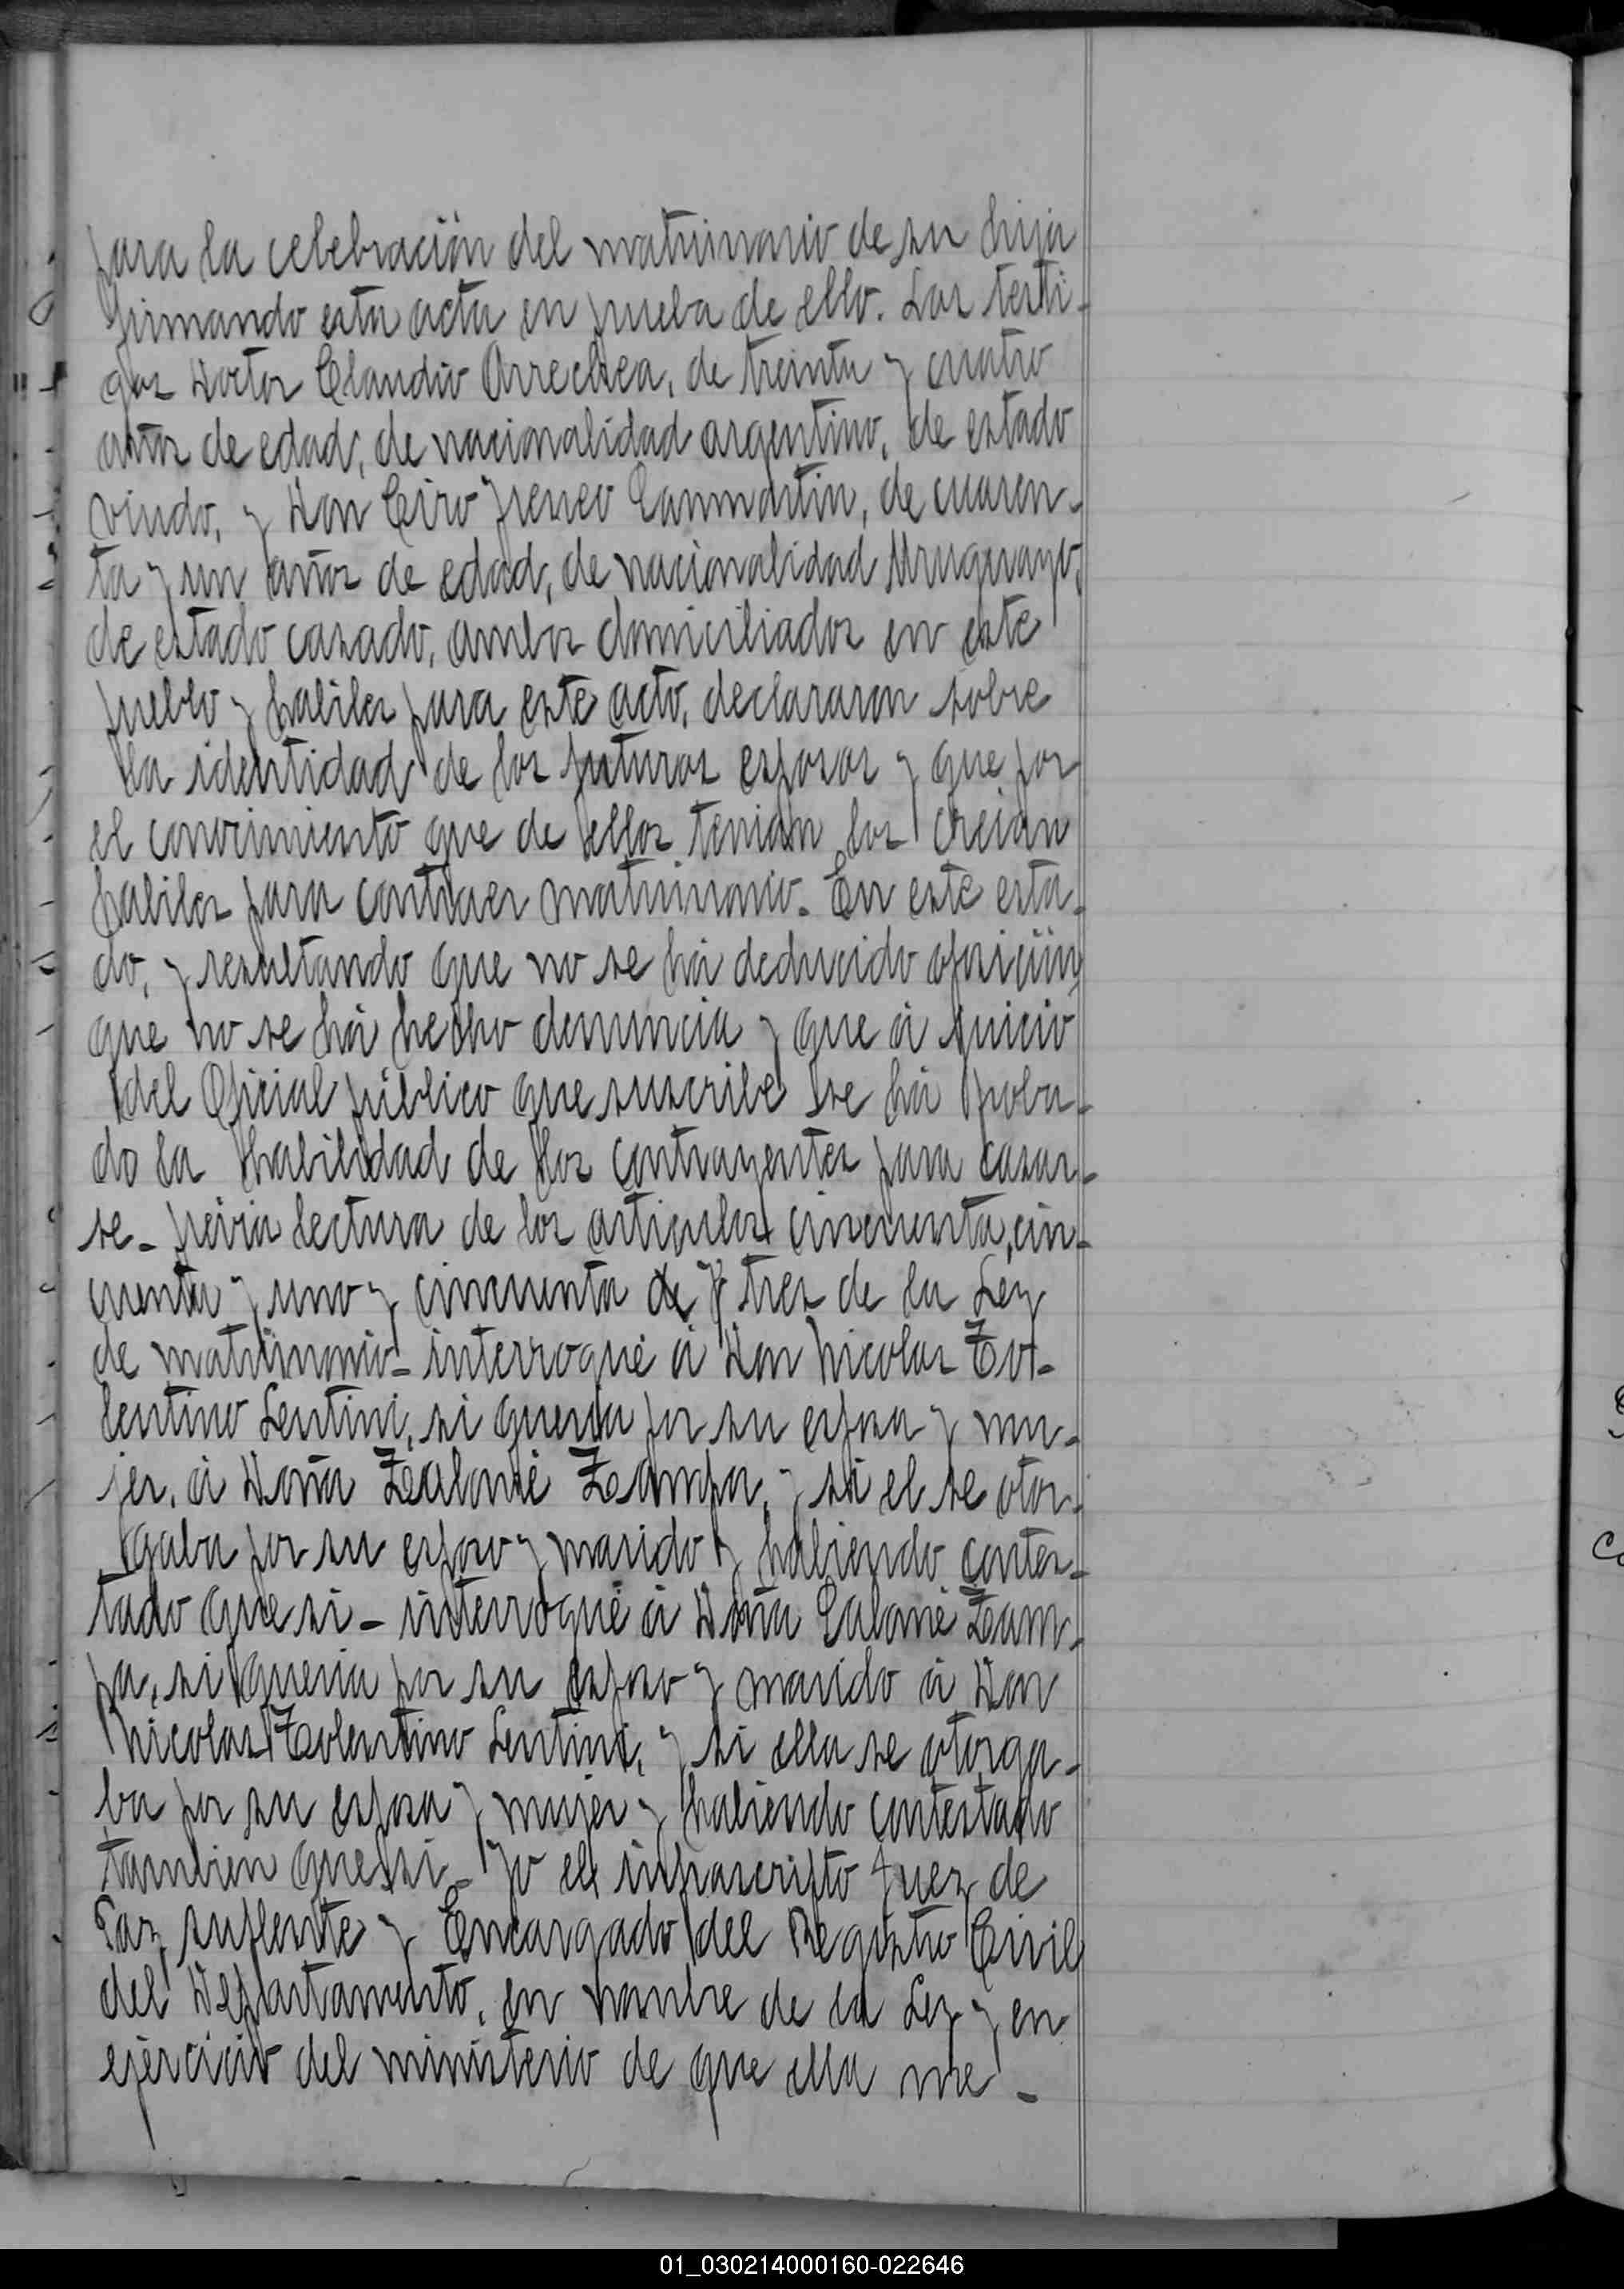 para la celebración del matrimonio de su hija
firmando esta acta en prueba de ello. Los testi-
gos Doctor Claudio Arrechea, de treinta y cuatro
años de edad, de nacionalidad argentino, de estado
viudo, y Don Ciro Ireneo Sanmartin, de cuaren-
ta y un años de edad, de nacionalidad Uruguayo,
de estado casado, ambos domiciliados en este
pueblo y habiles para este acto, declararon sobre
la identidad de los futuros esposos y que por
el conocimiento que de ellos tenian los creian
habiles para contraer matrimonio. En este esta-
do, y resultando que no se há deducido oposición
que no se há hecho denuncia y que á juicio
del Oficial público que suscribe se há proba-
do la habilidad de los contrayentes para casar-
se- prévia lectura de los articulos cincuenta, cin-
cuenta y uno y cincuenta de y tres de la Ley
de matrimonio- interrogué á Don Nicolas To-
lentino Sentini, si queria por su esposa y mu-
jer, á Doña Zalomé Zampa, y si el se otor-
gaba por su esposo y marido y habiendo contes-
tado que si- interrogué á Doña Salomé Zam-
pa, si queria por su esposo y marido á Don
Nicolas Tolentino Sentini, y si ella se otorga-
ba por su esposa y mujer y habiendo contestado
tambien que si- Yo el infrascripto Juez de
Paz suplente y Encargado del Registro Civil
del Departamento, en nombre de la Ley y en
ejercicio del ministerio de que ella me-
01_030214000160-022646